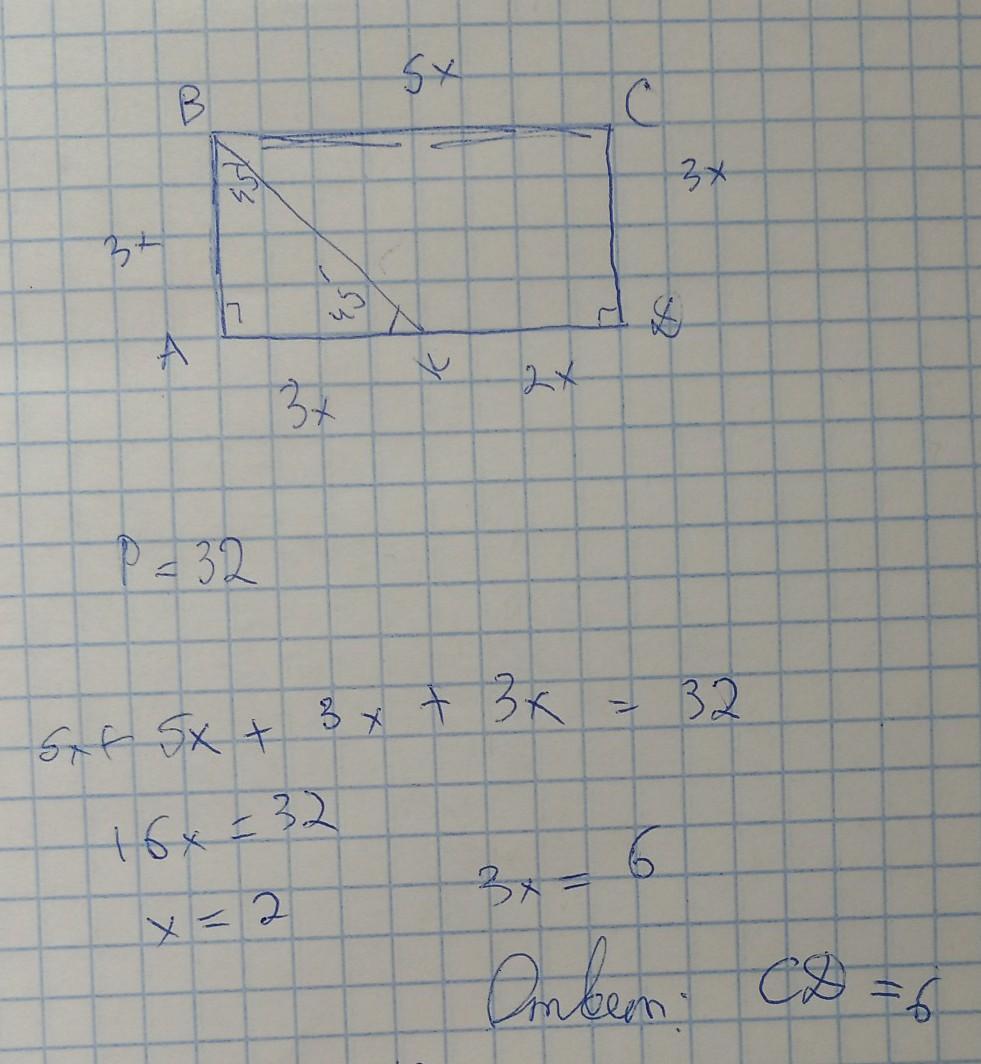 5x
B C
45°
3x
3x
45°
A K D
3x 2x
P = 32
5x + 5x + 3x + 3x = 32
16x = 32
3x = 6
x = 2
Ответ: CD = 6